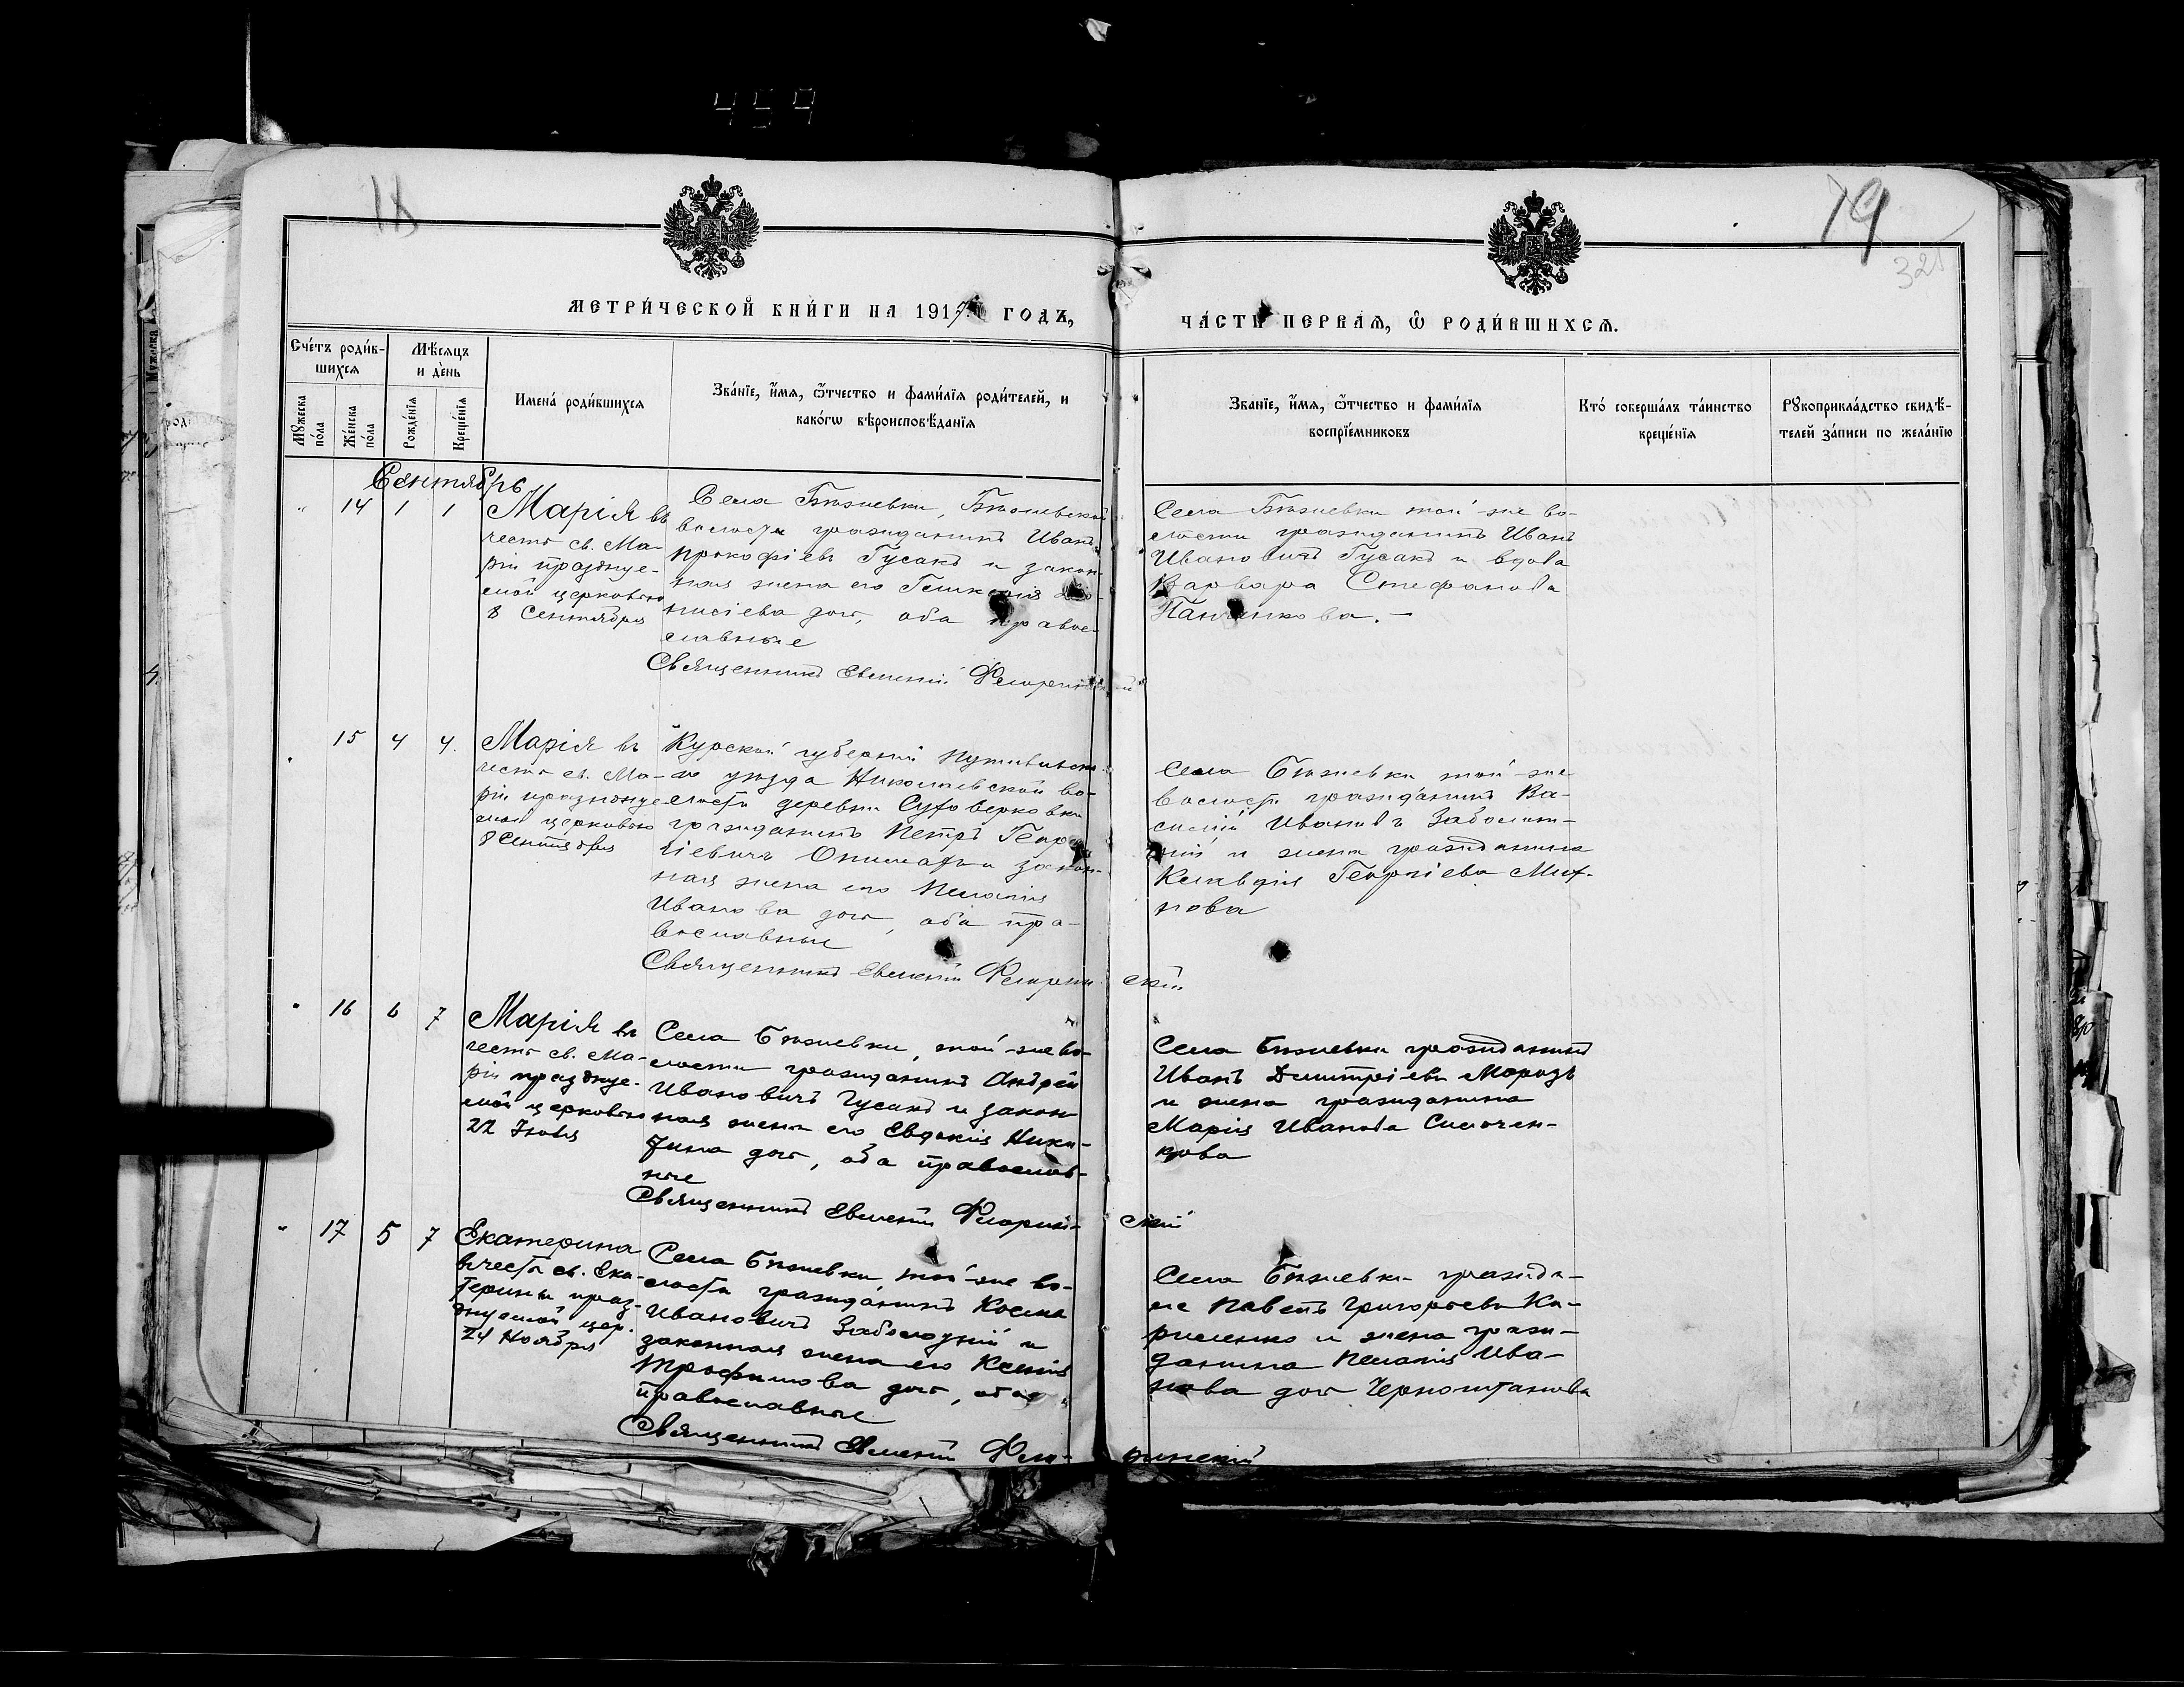 459
18
19
325
МЕТРИ́ЧЕСКОЙ КНИ́ГИ НА 1917 ГОДЪ,
ЧА́СТЬ ПЕРВАЯ, Ѡ РОДИ́ВШИХСЯ.
Сче́тъ роди́в-
шихся
Мѣ́сяцъ
и де́нь
Мꙋ́жеска
по́ла
Же́нска
по́ла
Рожде́нїя
Креще́нїя
Имена́ роди́вшихся
Зва́нїе, и́мя, ѻ҆́тчество и фами́лїя роди́телей, и
како́гѡ вѣроисповѣ́данїя
Зва́нїе, и́мя, ѻ҆́тчество и фами́лїя
воспрїе́мниковъ
Кто́ соверша́лъ та́инство
креще́нїя
Рꙋкоприкла́дство свидѣ́-
телей за́писи по жела́нїю
Сентябрь
" 14 1 1
Марія въ
честь св. Ма-
ріи праздnуе-
мой церковью
8 Сентября
Села Бѣжевки,
волости гражданинъ Иванъ
Прокофіевъ Гусакъ и закон-
ная жена его
нисіева дочь, оба правос-
лавные
Священникъ Евменій
Села Бѣжевки той-же во-
лости гражданинъ Иванъ
Ивановичъ Гусакъ и вдова
Варвара Стефанова
Панченкова.-
15 4 4.
Марія въ
честь св. Ма-
ріи празднуе-
мой церковью
8 Сентября
Курской губерніи Путивльска-
го уѣзда Николаевской во-
лости деревни Суховерковки
гражданинъ Петръ Геор-
гіевичъ и закон-
ная жена его Пелагія
Иванова дочь, оба пра-
вославные
Священникъ Евменій
скій
Села Бѣжевки той-же
волости гражданинъ Ва-
силій Ивановъ Заболот-
ній и жена гражданина
Клавдія Георгіева Мих-
нова
" 16 6 7
Марія въ
честь св. Ма-
ріи празднуе-
мой церковью
22 Іюля
Села Бѣжевки, той-же во-
лости гражданинъ Андрей
Ивановичъ Гусакъ и закон-
ная жена его Евдокія Ники-
фина дочь, оба православ-
ные
Священникъ Евменій
скій
Села Бѣжевки гражданинъ
Иванъ Димитріевъ Морозъ
и жена гражданина
Марія Иванова
кова
" 17 5 7
Екатерина
въ честь св. Ека-
терины праз-
днуемой цер.
24 Ноября
Села Бѣжевки той-же во-
лости гражданинъ Косма
Ивановичъ Заболотній и
законная жена его Ксенія
Трофимова дочь, оба
православные
Священникъ Евменій
ринскій
Села Бѣжевки гражда-
не Павелъ Григорьевъ Ки-
риленко и жена граж-
данина Пелагія Ива-
нова дочь Черноштанова